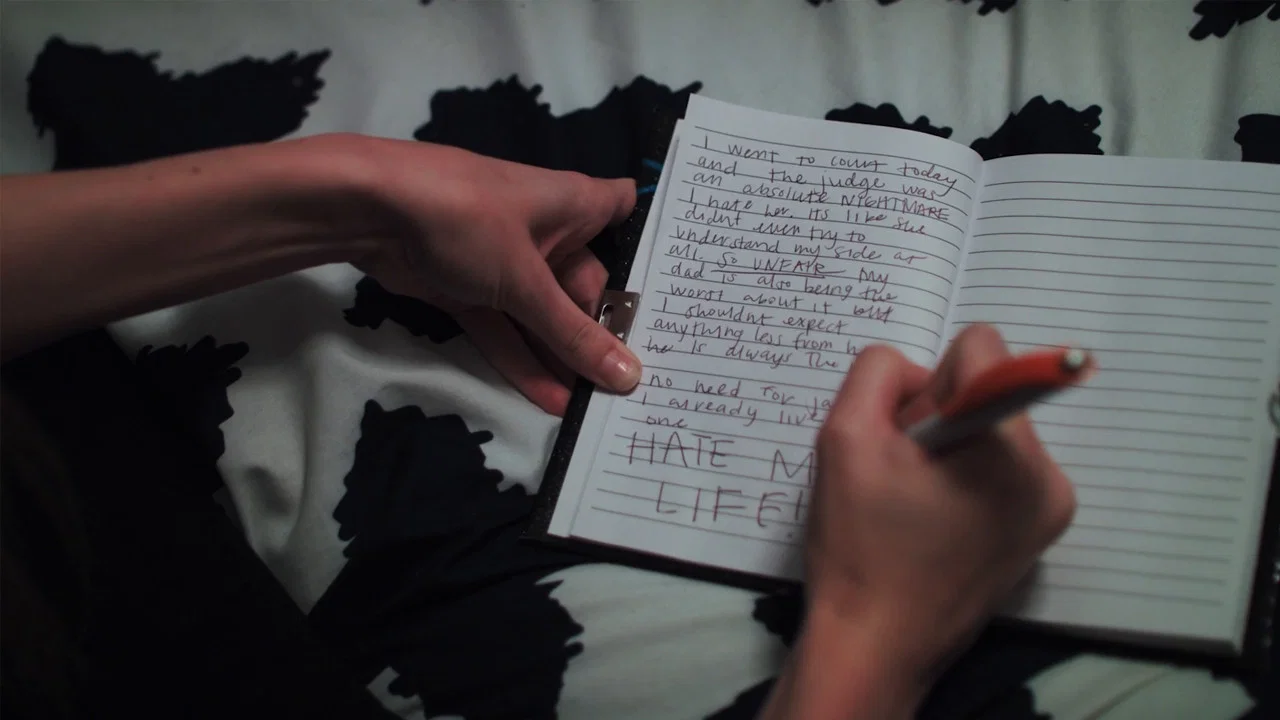 I went to court today
and the judge was
an absolute NIGHTMARE
I hate her. Its like she
didnt even try to
understand my side at
all. SO UNFAIR My
dad is also being the
worst about it but
I shouldnt expect
anything less from
he is always the
no need for
I already live
one
HATE
LIFE!